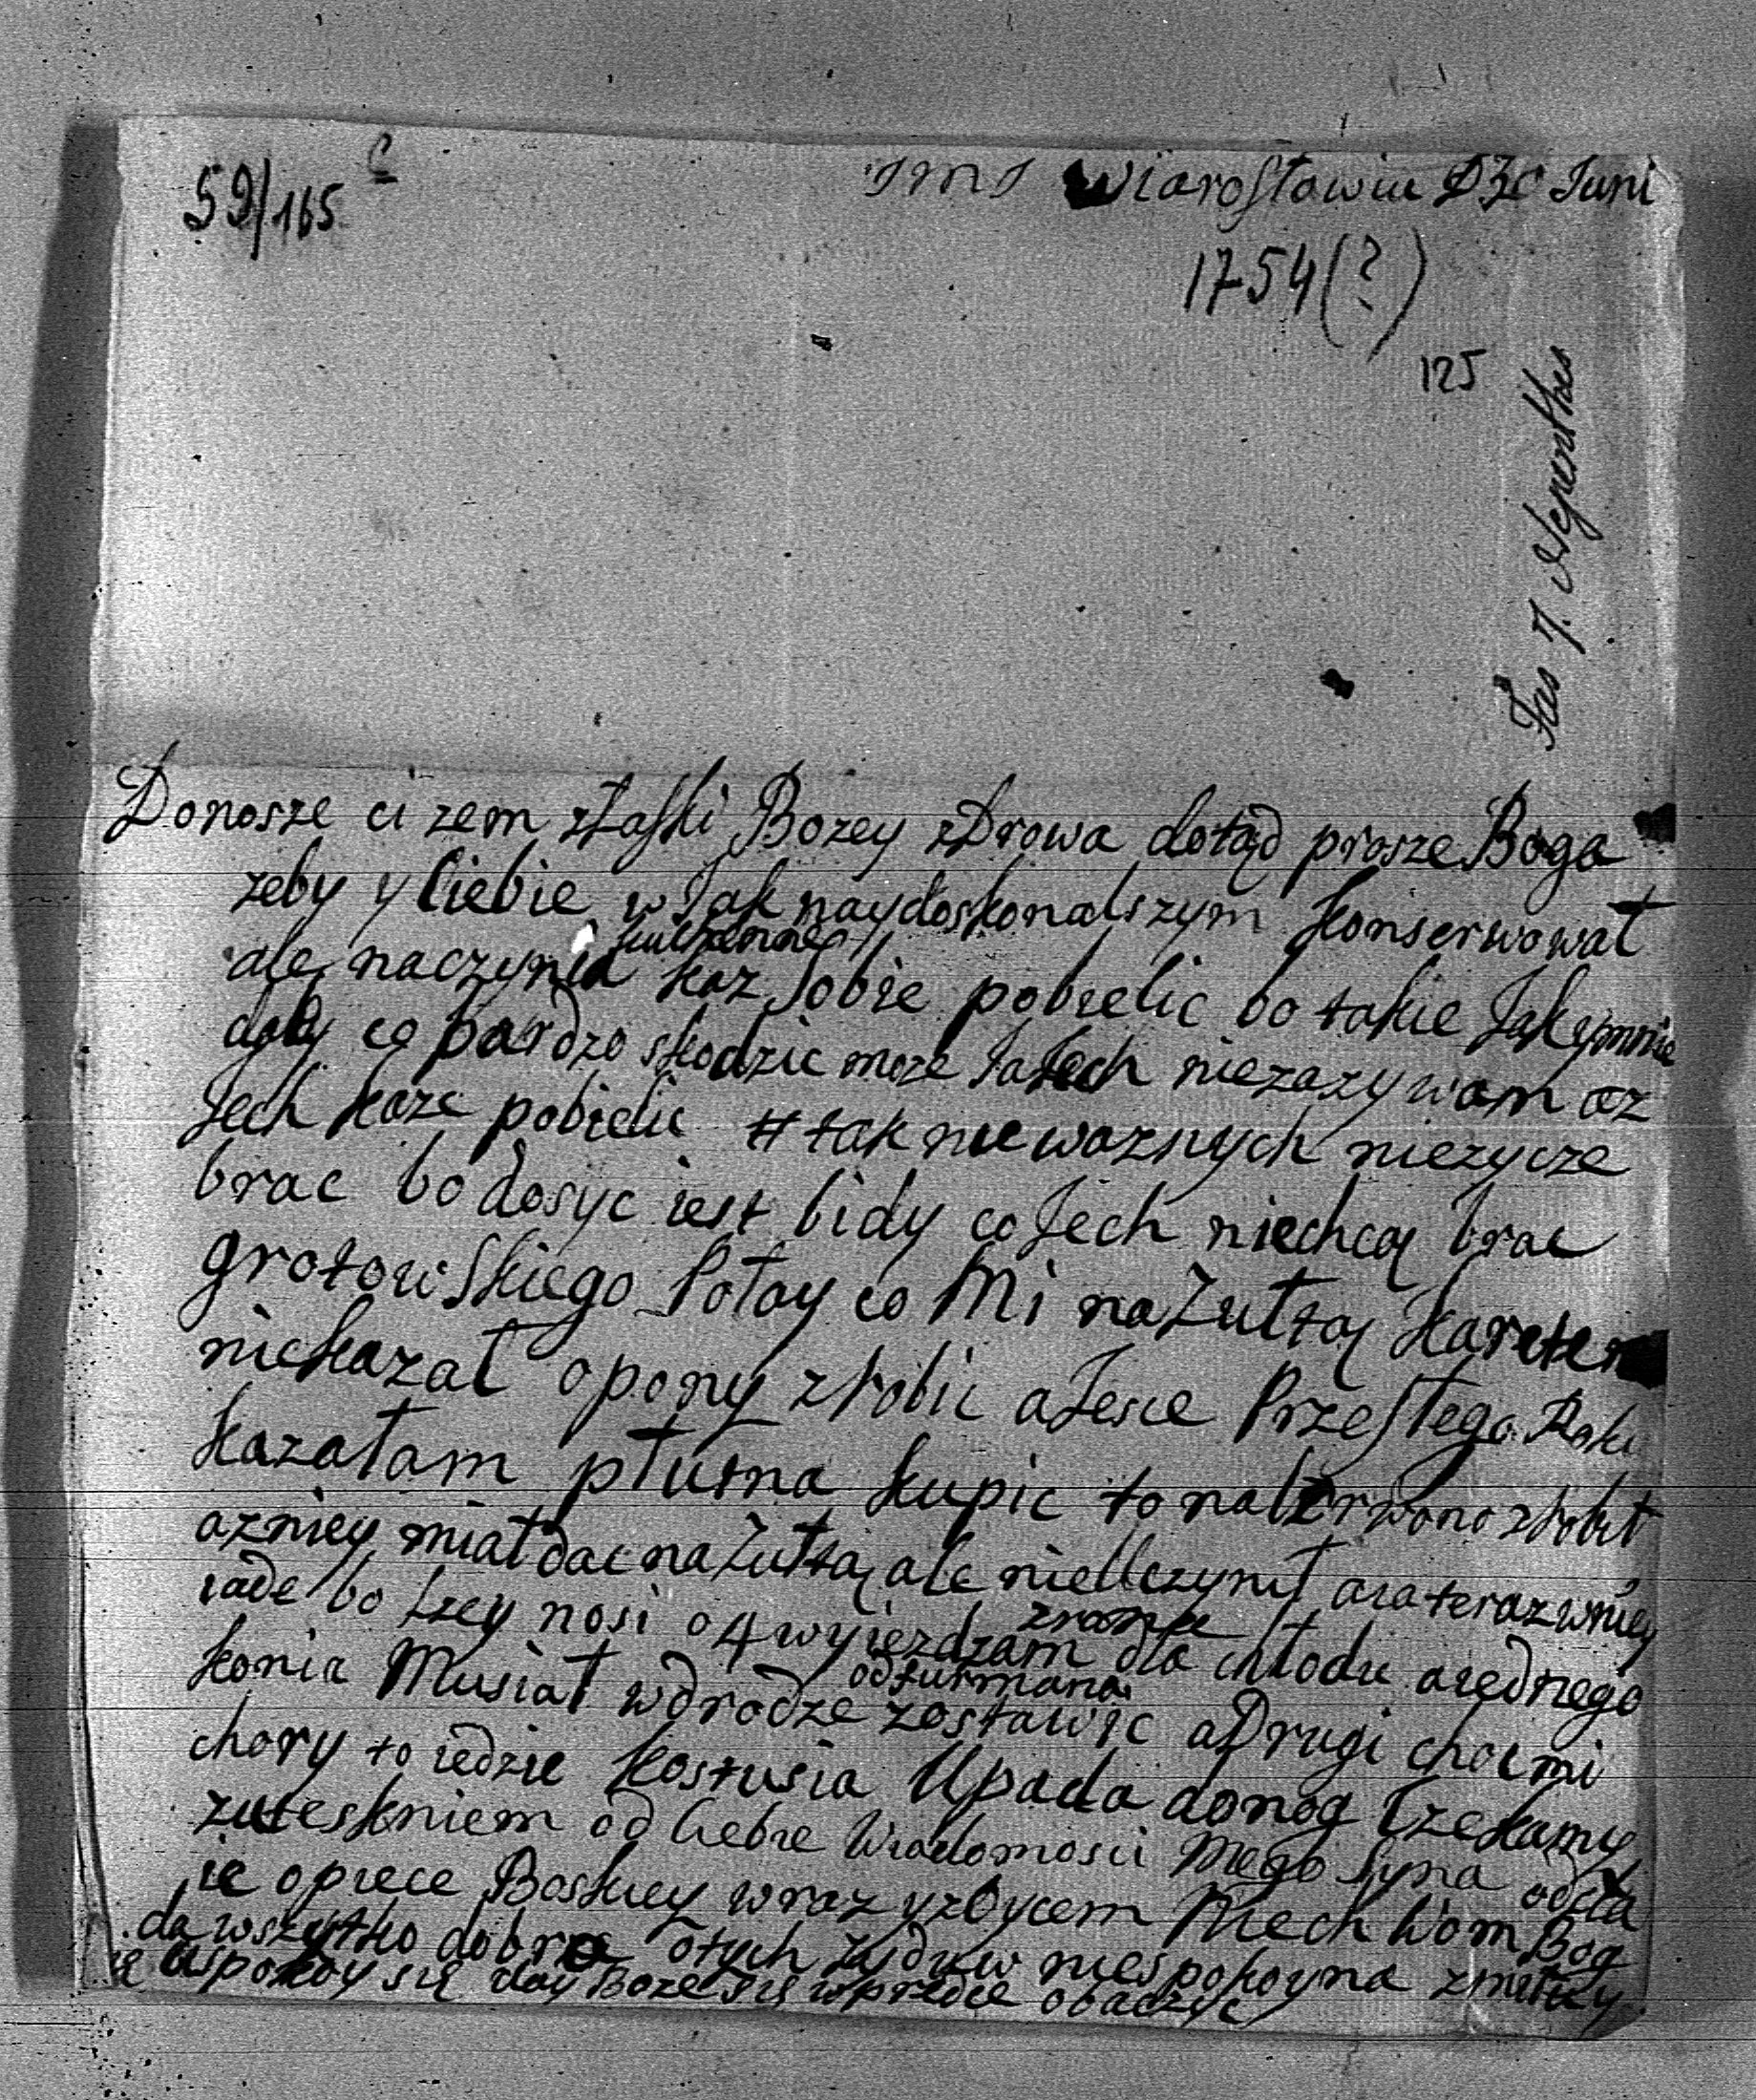 59/165 c
JMJ Wiarosławiu D 30 Juni
1754(?)
125
Fas 7. Nepenthes
Donosze ci zem zŁaski Bozey zDrowa dotąd prosze Boga
zeby y Ciebie w Jak naydoskonalszym konserwował
kuchenne
ale naczynia kaz Sobie pobielic bo takie Jak y mnie
dały co bardzo skodzic moze Ja Jech niezazywam az
Jech kaze pobielic # tak niewaznych niezycze
brac bo dosyc iest bidy co Jech niechcą brac
grotowskiego Połay co Mi na Zułtą karete
niekazał opony zrobic a Jesce Przeszłego Roku
kazałam płutna kupic to na Czerwono zrobił
azniey miał dac na Zułtą ale nieUczynił a ia teraz wniey
zrana
iade bo lzey nosi o 4 wyiezdzam dla chłodu a iednego
odfurmana
konia Musiał wdrodze zostawic a Drugi choc mi
chory to iedzie kostusia Upada donog Czekamy
zuteskniem od Ciebie Wiadomosci Mego Syna odda
ie opiece Boskiey wraz y zOycem Niech Wom Bog
da wszytko dobre otych Zydow niespokoyna zmiłuy
ę Uspokoy się day Boze się wprędce obaczyc